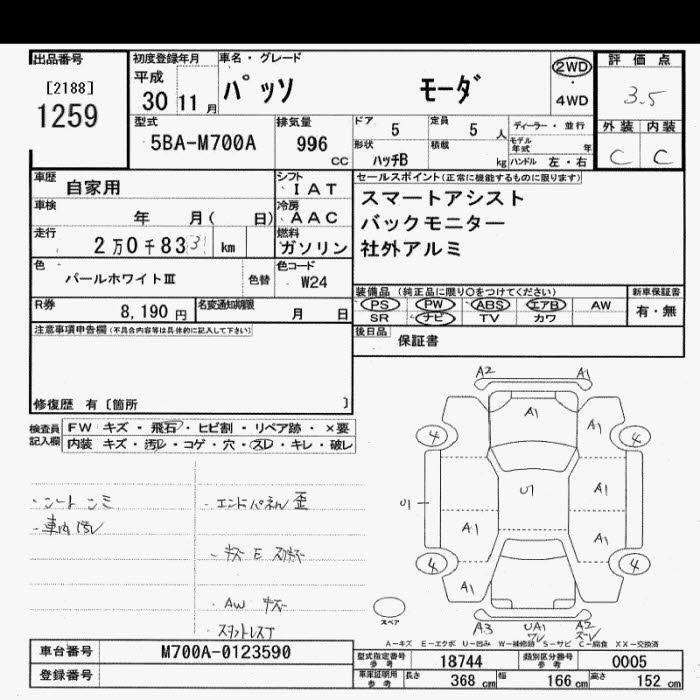 出品番号
[2188]
1259
初度登録年月
平成
30 11 月
車名・グレード
パッソ モーダ
2WD
・
4WD
評価点
3.5
外装 内装
C C
型式
5BA-M700A
排気量
996 cc
ドア 5
定員 5 人
形状 ハッチB
積載 kg
ディーラー・並行
モデル年式 年
ハンドル 左・右
車歴 自家用
車検 年 月( 日)
走行 2万0千83 km
色 パールホワイトⅢ 色替
シフト IAT
冷房 AAC
燃料 ガソリン
色コード W24
セールスポイント(正常に機能するものに限ります)
スマートアシスト
バックモニター
社外アルミ
装備品 (純正品に限り○をつけてください)
PS PW ABS エアB AW
SR ナビ TV カワ
新車保証書
有・無
R券 8,190 円
名変通知期限 月 日
後日品 保証書
注意事項申告欄(不具合内容等は具体的に記入して下さい)
修復歴 有 [箇所 ]
検査員記入欄
FW キズ・飛石・ヒビ割・リペア跡・×要
内装 キズ・汚レ・コゲ・穴・スレ・キレ・破レ
・車内汚レ
・エンドパネル歪
AW キズ
スタッドレス
A2 A1
A1 A1
4 4
U1 U1 A1
A1 A1
4 4
A1
A3 UA1 A2
スペア
A-キズ E-エクボ U-凹み W-補修跡 S-サビ C-腐食 XX-交換済
車台番号 M700A-0123590
登録番号
型式指定番号 参考 18744
類別区分番号 参考 0005
車庫証明用 参考 長さ 368 cm 幅 166 cm 高さ 152 cm